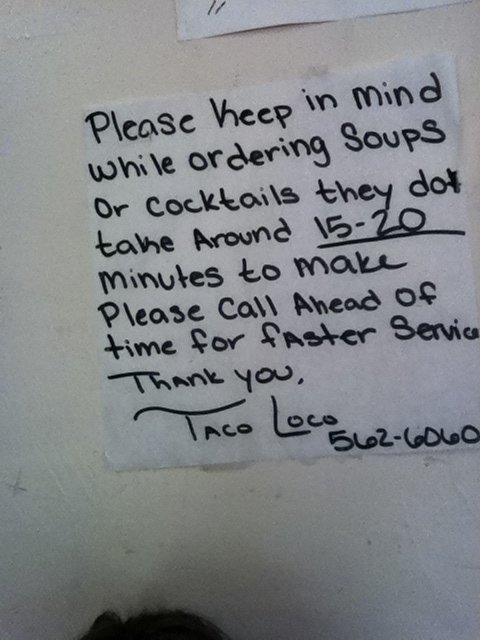 Please Keep in mind
while ordering Soups
Or cocktails they do
take Around 15-20
minutes to make
Please Call Ahead Of
time for fAster Service
Thank you.
Taco Loco
562-6060